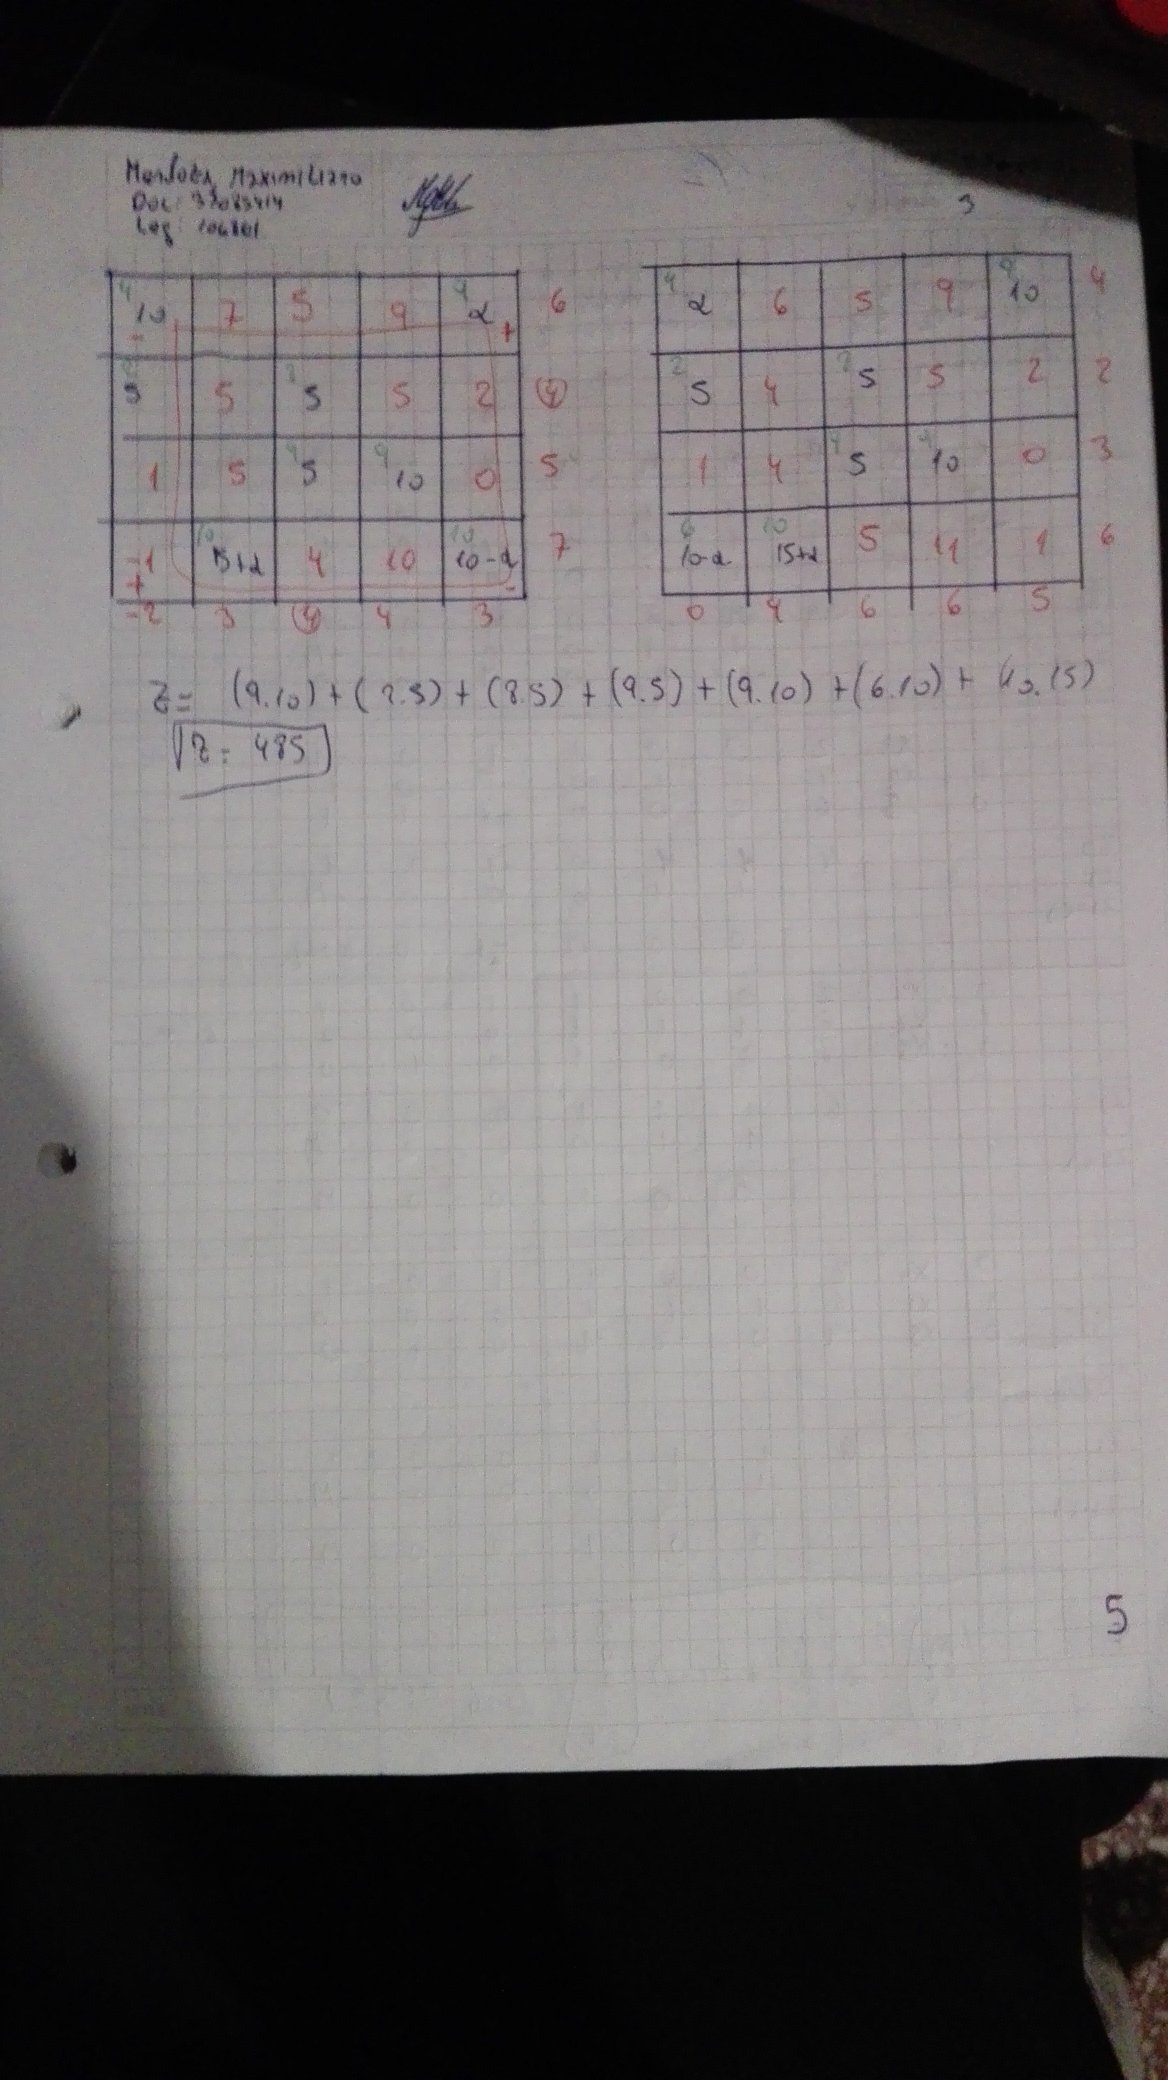 Maximiliano
Doc: 33083414
Leg: 106801
3
4 10 7 5 9 9 α 6
- +
5 5 5 5 2 4
1 5 9 5 9 10 0 5
-1 10 15+α 4 10 10 10-α 7
+ -
-2 3 4 4 3
4 α 6 5 9 10 4
2 5 4 5 5 2 2
1 4 5 10 0 3
6 10-α 10 15+α 5 11 1 6
0 4 6 6 5
Z= (9.10)+(2.5)+(8.5)+(9.5)+(9.10)+(6.10)+(10.15)
Z= 485
5